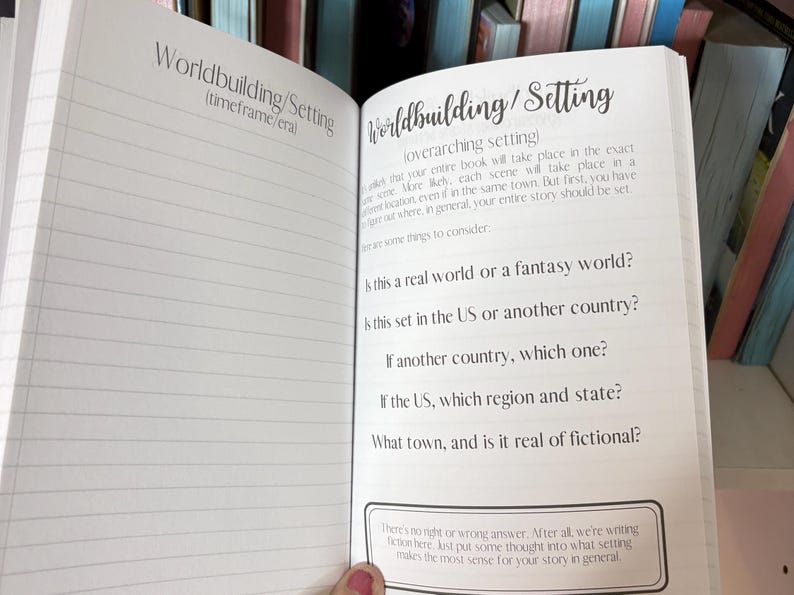 Worldbuilding/Setting
(timeframe/era)
Worldbuilding/Setting
(overarching setting)
It's unlikely that your entire book will take place in the exact
same scene. More likely, each scene will take place in a
different location, even if in the same town. But first, you have
to figure out where, in general, your entire story should be set.
Here are some things to consider:
Is this a real world or a fantasy world?
Is this set in the US or another country?
If another country, which one?
If the US, which region and state?
What town, and is it real of fictional?
There's no right or wrong answer. After all, we're writing
fiction here. Just put some thought into what setting
makes the most sense for your story in general.